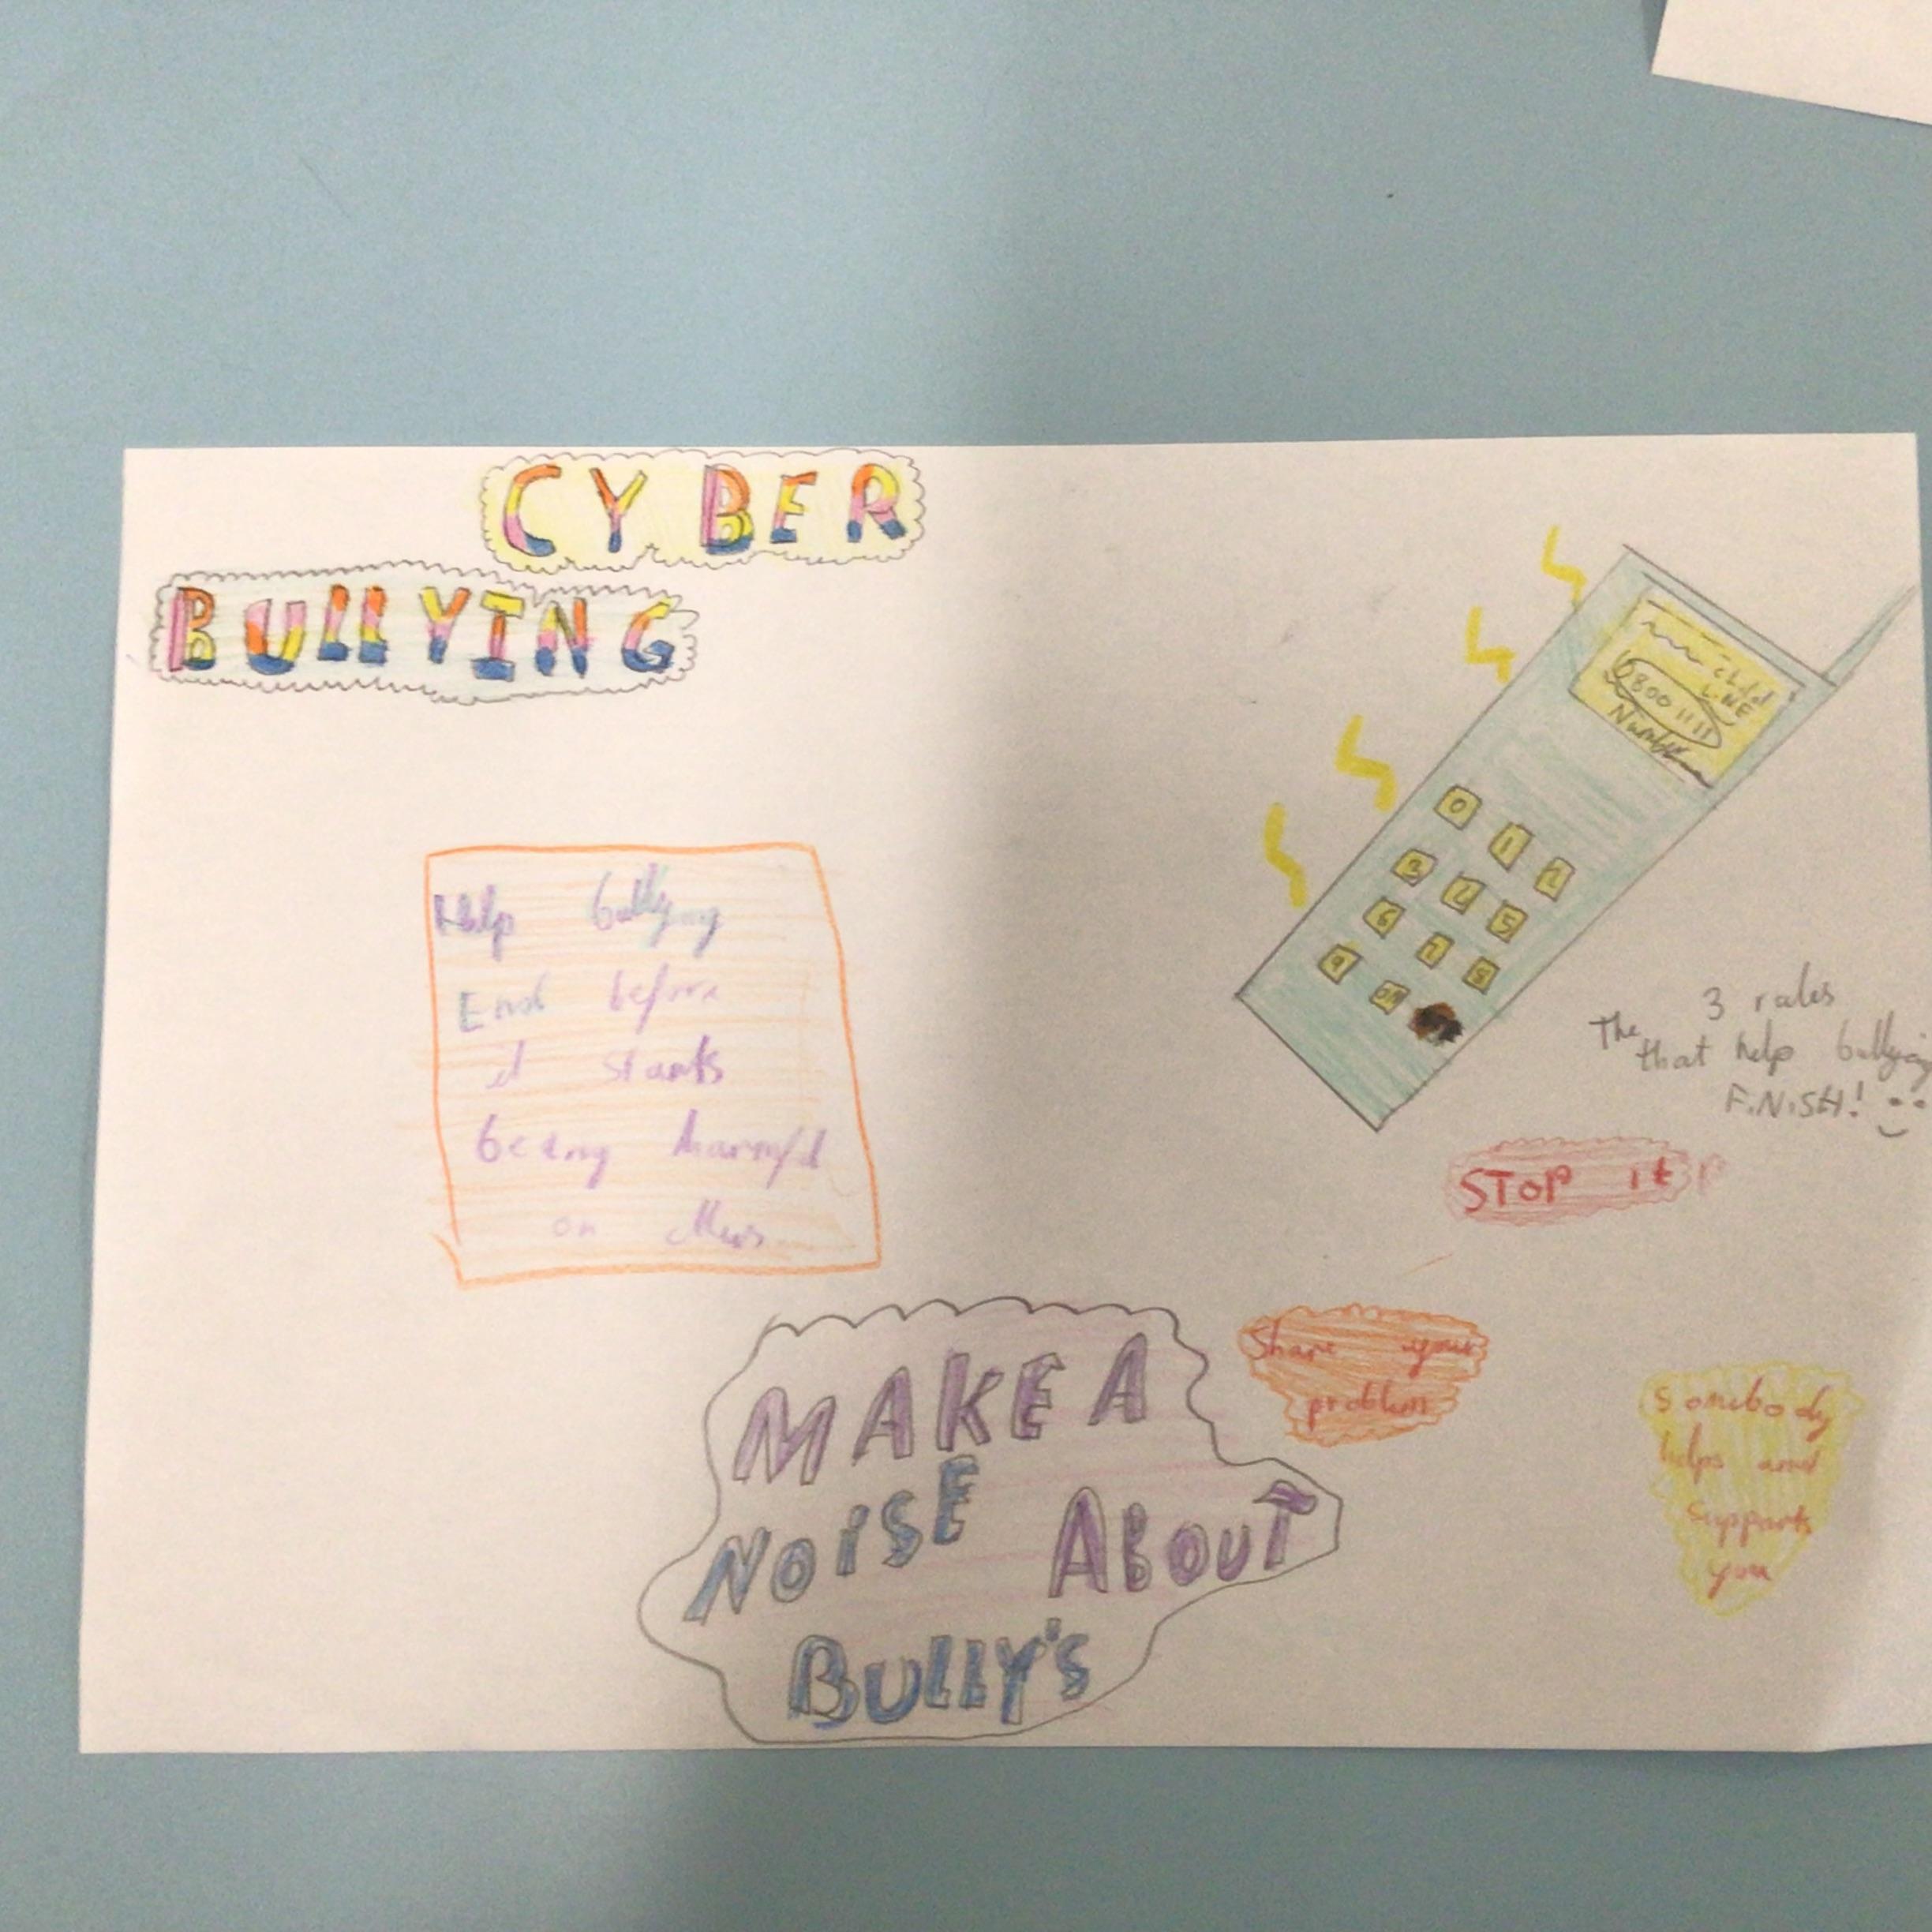 CYBER
BULLYING
child
LINE
0800 1111
Number
0 1 2
3 4 5
6 7 8
9 ON
Help bullying
End before
it starts
being harmful
on
3 rules
The that help bullying
FINISH!
STOP it
Share your
problem
Somebody
helps and
supports
you
MAKE A
NOISE ABOUT
BULLY'S